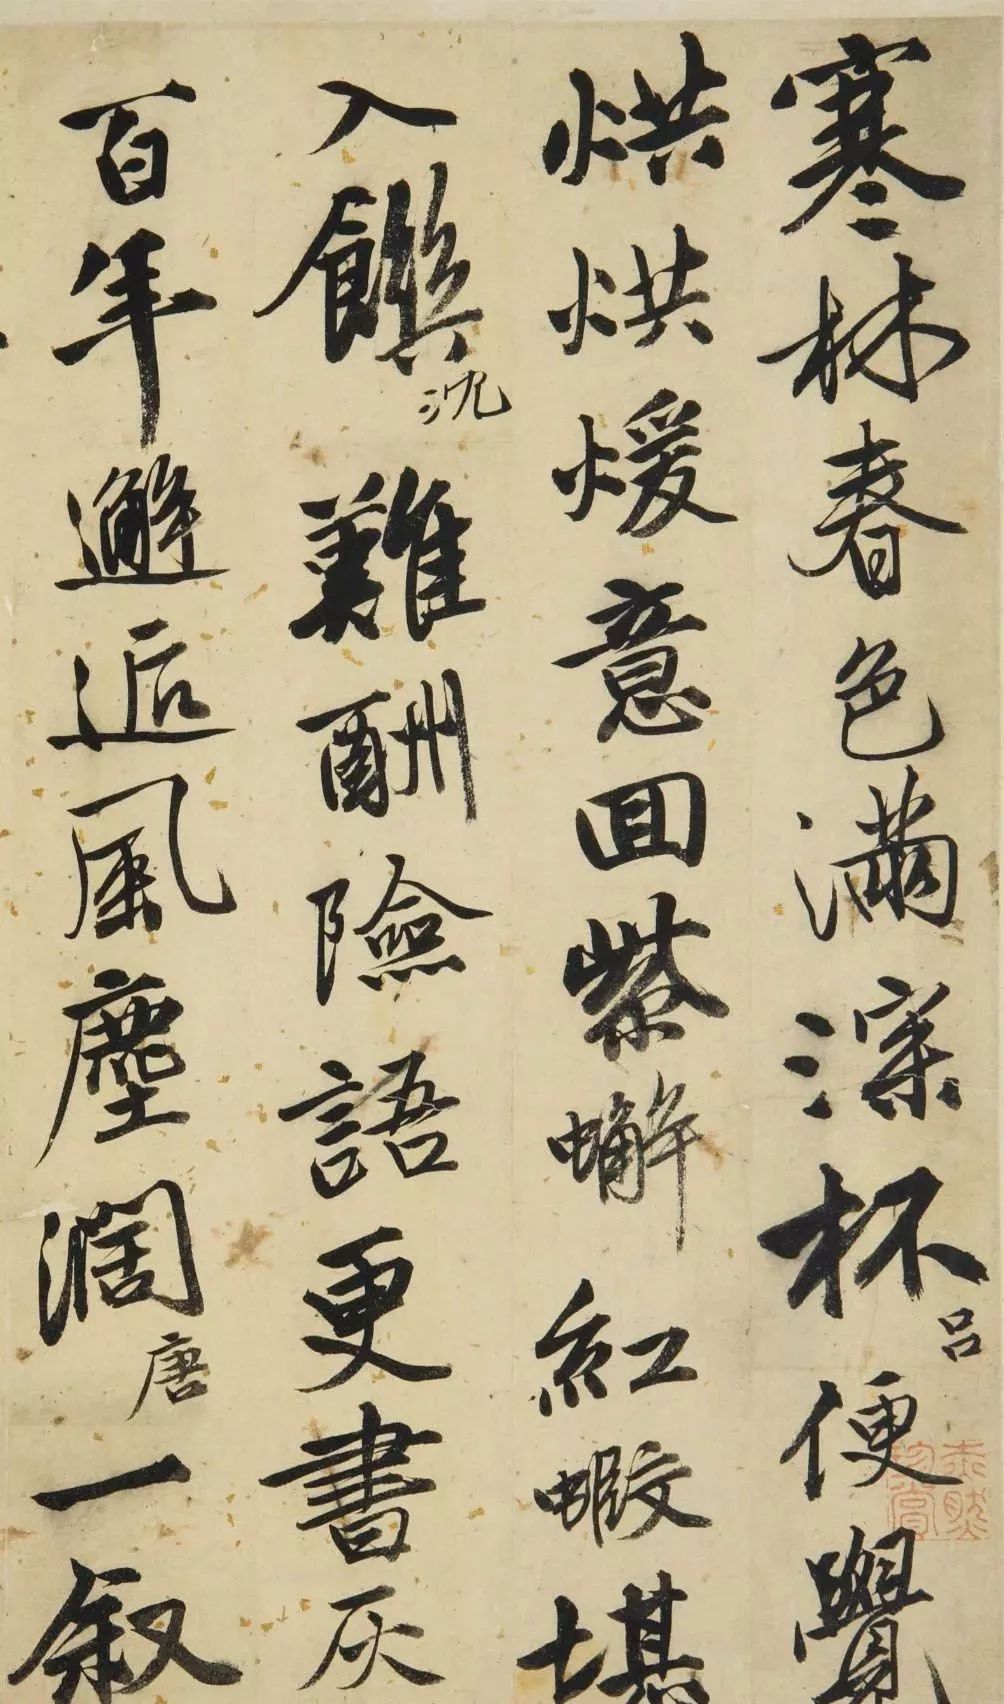 寒林春色滿深杯吕便覺
烘烘煖意回紫蠏紅蝦堪
入饌沈難酬險語更書灰
百年邂逅風塵闊唐一叙